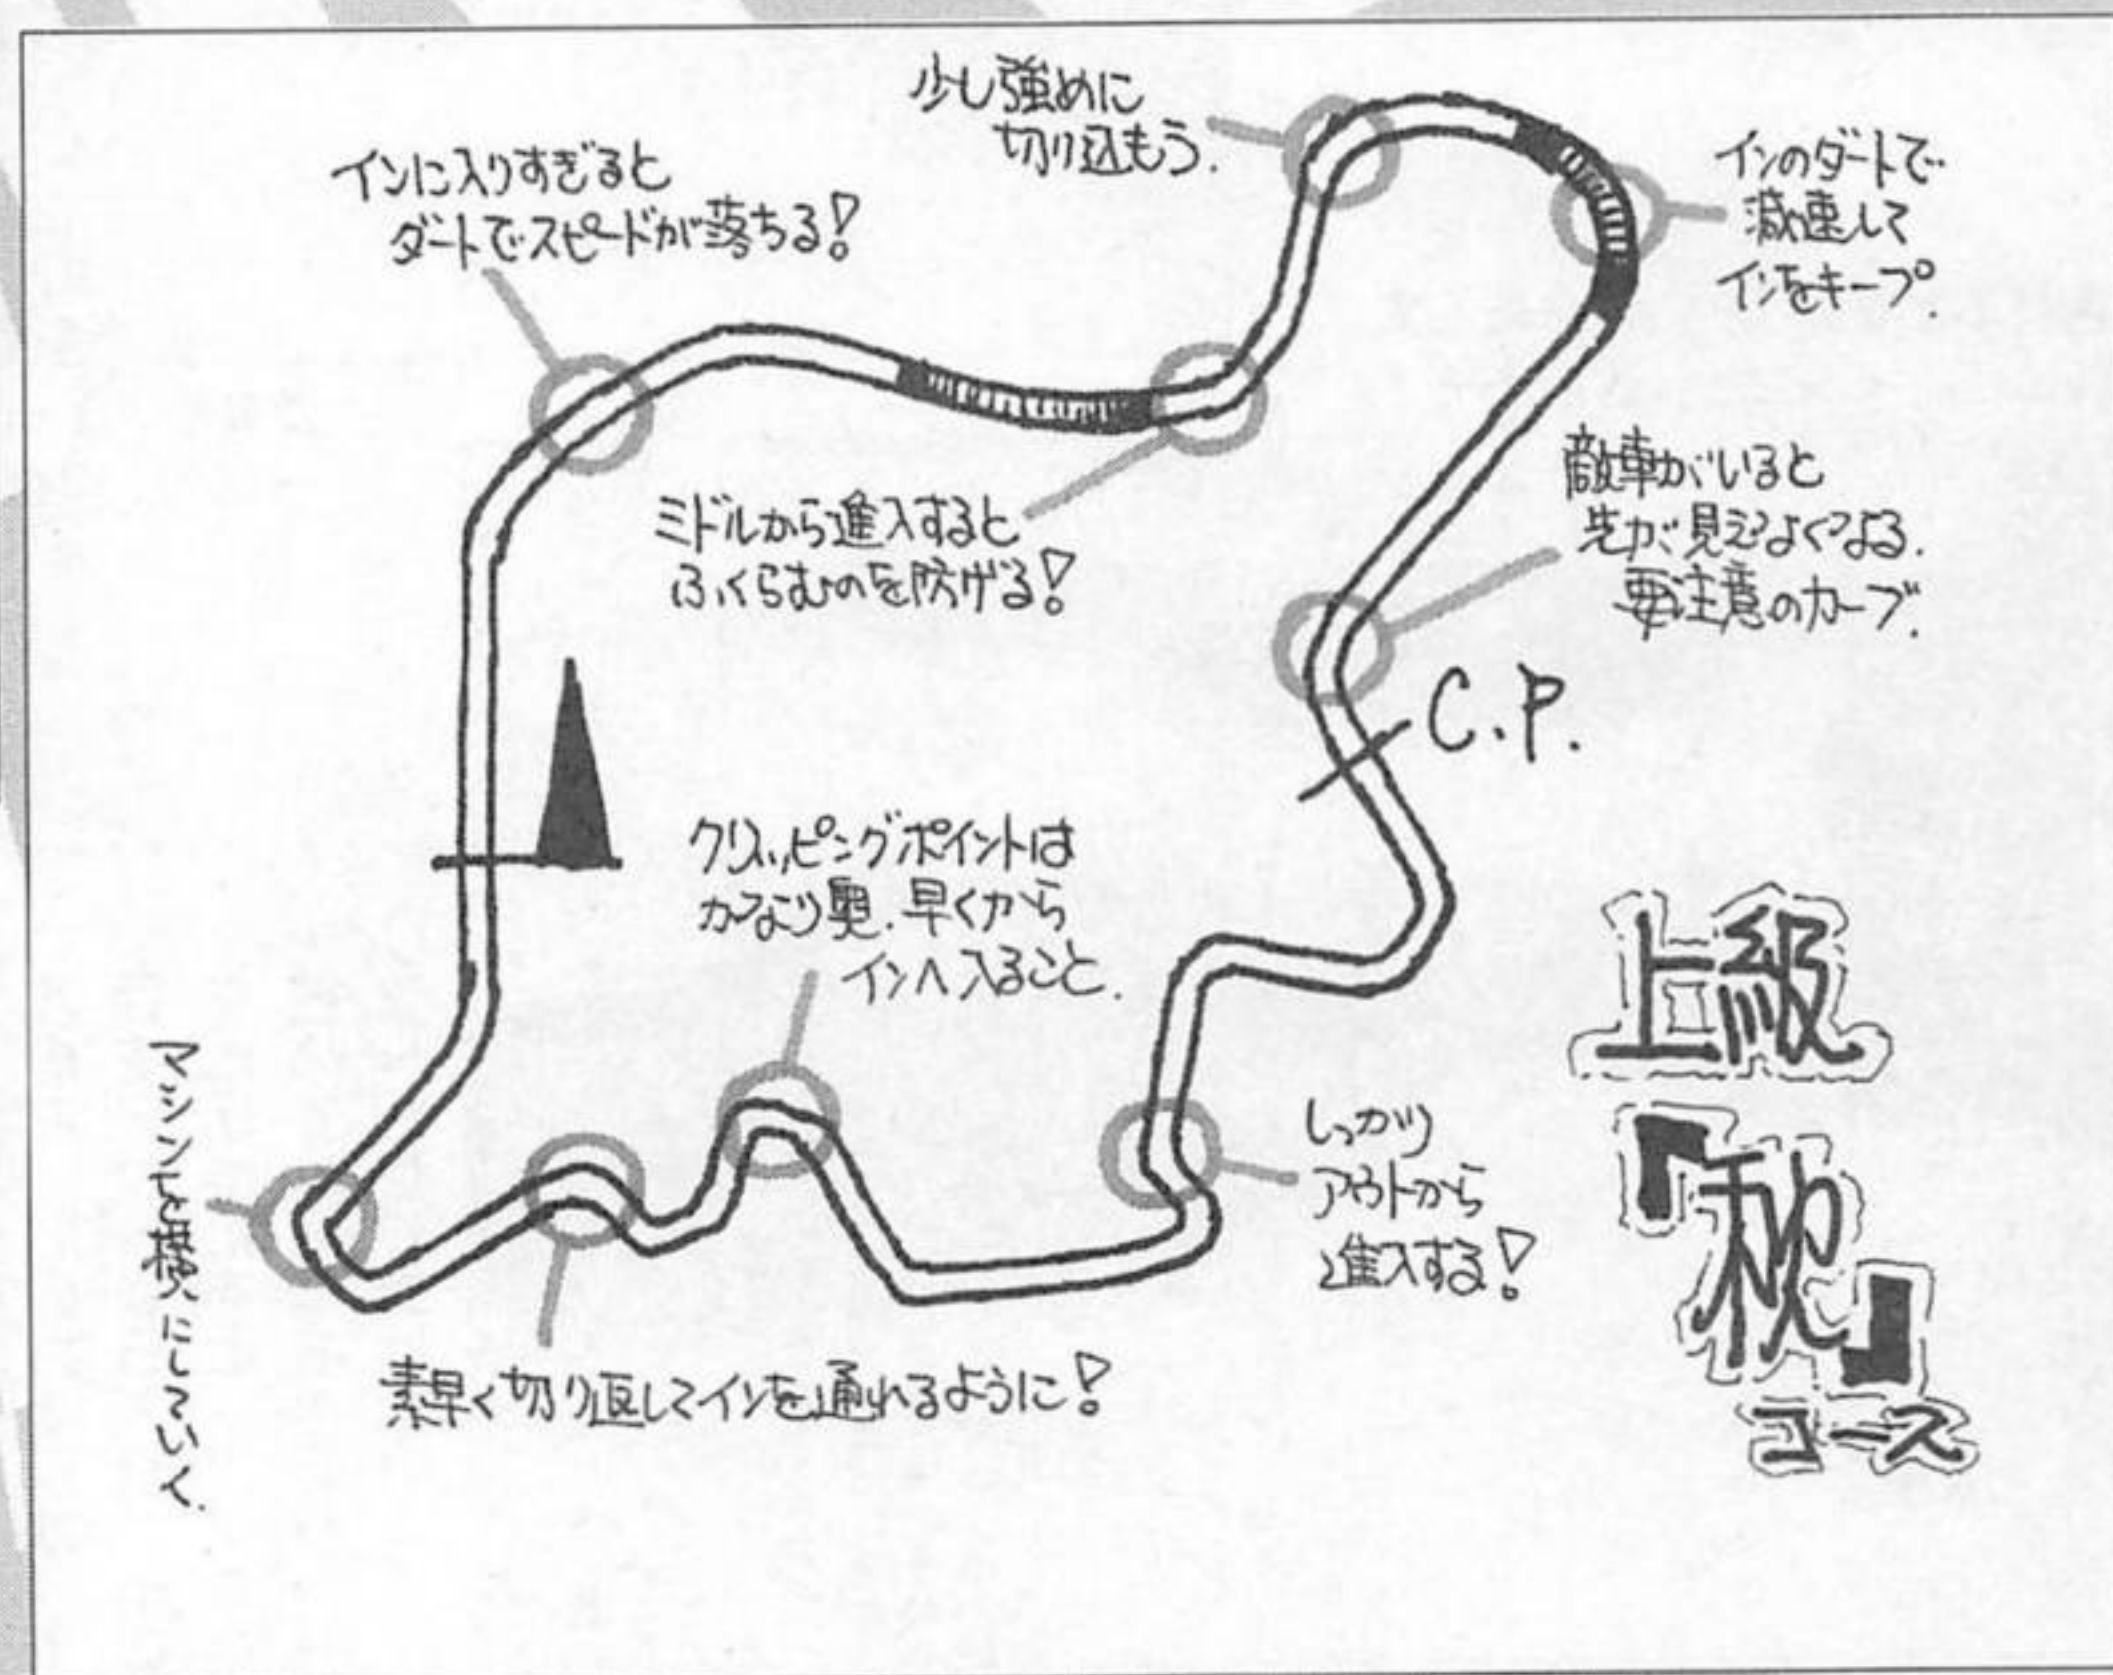 少し強めに
切り込もう.
インに入りすぎると
ダートでスピードが落ちる!
インのダートで
減速して
インをキープ.
ミドルから進入すると
ふくらむのを防げる!
敵車がいると
先が見えなくなる.
要注意のカーブ.
C.P.
クリッピングポイントは
かなり奥.早くから
インへ入ること.
上級
『秋』
コース
しっかり
アウトから
進入する!
マシンを横にしていく.
素早く切り返してインを通れるように!